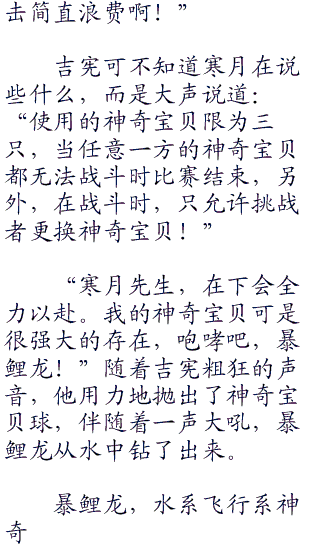 击简直浪费啊！”
吉宪可不知道寒月在说
些什么，而是大声说道：
“使用的神奇宝贝限为三
只，当任意一方的神奇宝贝
都无法战斗时比赛结束，另
外，在战斗时，只允许挑战
者更换神奇宝贝！”
“寒月先生，在下会全
力以赴。我的神奇宝贝可是
很强大的存在，咆哮吧，暴
鲤龙！”随着吉宪粗狂的声
音，他用力地抛出了神奇宝
贝球，伴随着一声大吼，暴
鲤龙从水中钻了出来。
暴鲤龙，水系飞行系神
奇